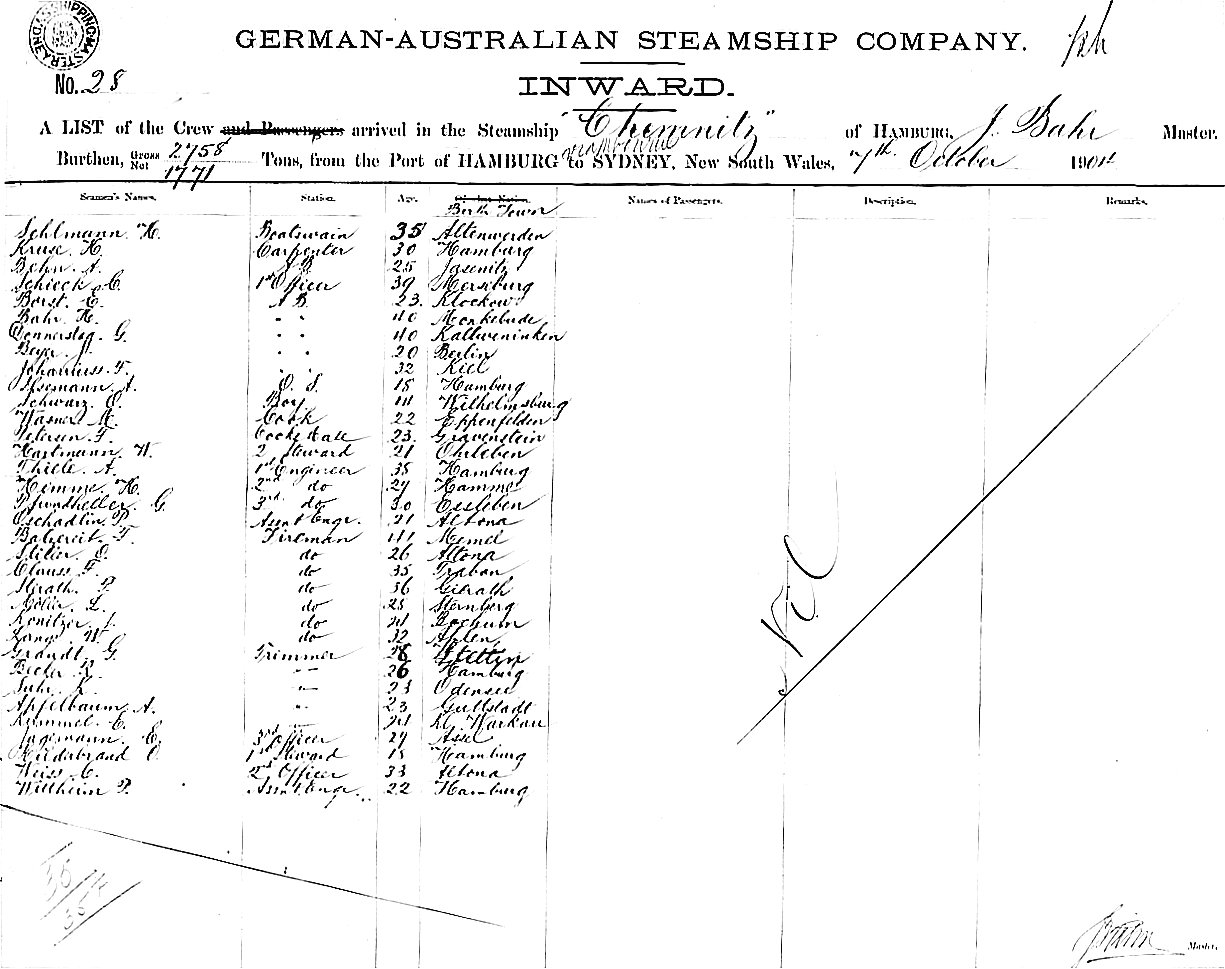 SYDNEY SHIPPING MASTER
GERMAN-AUSTRALIAN STEAMSHIP COMPANY.
No. 28
INWARD.
A LIST of the Crew and Passengers arrived in the Steamship "Chemnitz" of HAMBURG, J. Bahr Master.
Burthen, Gross 2758 Tons, from the Port of HAMBURG to SYDNEY, New South Wales, 7th October 1904
Net 1771
Seamen's Names. Station. Age. Names of Passengers. Description. Remarks.
Birth Town
Sehlmann. H. Boatswain 35 Altenwerden
Kruse. H. Carpenter 30 Hamburg
Behn. A. A.B. 25 Jasenitz
Schieck. C. 1st Officer 39 Merseburg
Borst. C. A.B. 23. Klockow
Bahr. H. " " 40 Monkebude
Donnerstag. G. " " 40 Kallweninken
Beyer. J. " " 20 Berlin
Johannss. F. " " 32 Kiel
A. O. S. 18 Hamburg
Schwarz. O. Boy Wilhelmsburg
Wasner. M. Cook 22 Eppenfelden
Petersen. F. Cooks Mate 23. Gravenstein
Hartmann. W. 2 Steward 21 Ohrleben
Thiele. A. 1st Engineer 38 Hamburg
Kimme. H. 2nd do 27 Hamme
Pfundheller. G 3rd. do 30 Essleben
Tschadlin. P. Asnt Engr. 21 Altona
F. Fireman 41 Memel
Stiller. O. do 26 Altona
Clauss. F. do 35
P. do 36 Girath
Adler. L. do 28 Sternberg
Konitzer. J. do 24 Bochum
Lange. W. do 32 Ahlen
Grandt. G. Trimmer 28 Stettin
Becker. R. " 26 Hamburg
Suhr. K. " 23 Odensee
Apfelbaum. A. " 23 Guttstadt
Kummel. E. " 24 Kl. Warkau
Jagemann. E. 3rd Officer 27 Assel
Hilderbrand O. 1st Steward 18 Hamburg
Weiss. C. 2nd Officer 33 Altona
Willheim P. Asnt Engr. 22 Hamburg
Master.